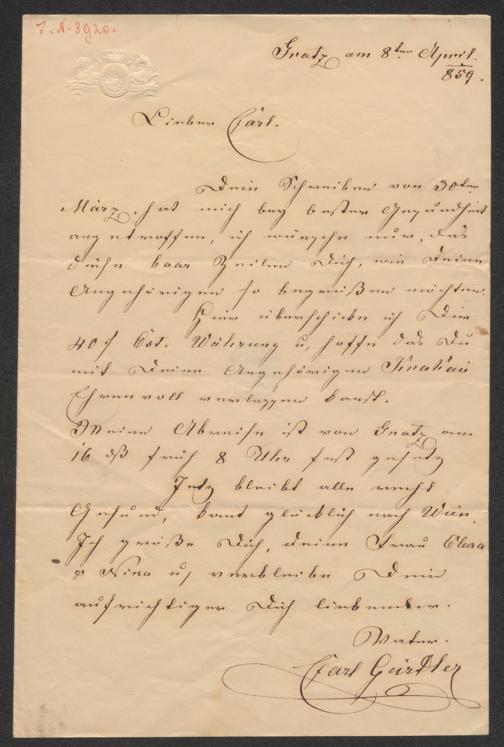 J. N. 3920.
Gratz am 8ten April.
859.
Lieber Carl.
Dein Schreiben von 30ten
März. hat mich bey bester Gesundheit
angetroffen, ich wünsche nur, das
diese paar Zeilen Dich, wie Deine
Angehörigen so begrüßen möchten.
Hier überschicke ich Dir
40 f Öst. Währung u, hoffe das Du
mit Deine Angehörigen
Ehrenvoll verlassen kanst.
Meine Abreise ist von Gratz am
16 dß früh 8 Uhr fest gesetz
Jetz bleibt alle recht
Gesund, komt glücklich nach Wien.
Ich grüße Dich, deine Frau Elena
Nina u, verbleibe Dein
aufrichtiger Dich liebender.
Vater.
Carl Gürtler